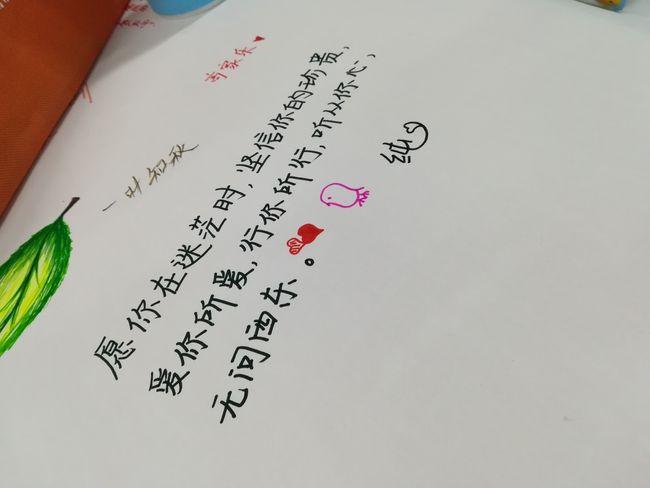 一叶知秋
愿你在迷茫时,坚信你的珍贵,
爱你所爱,行你所行,听从你心,
无问西东。
纯